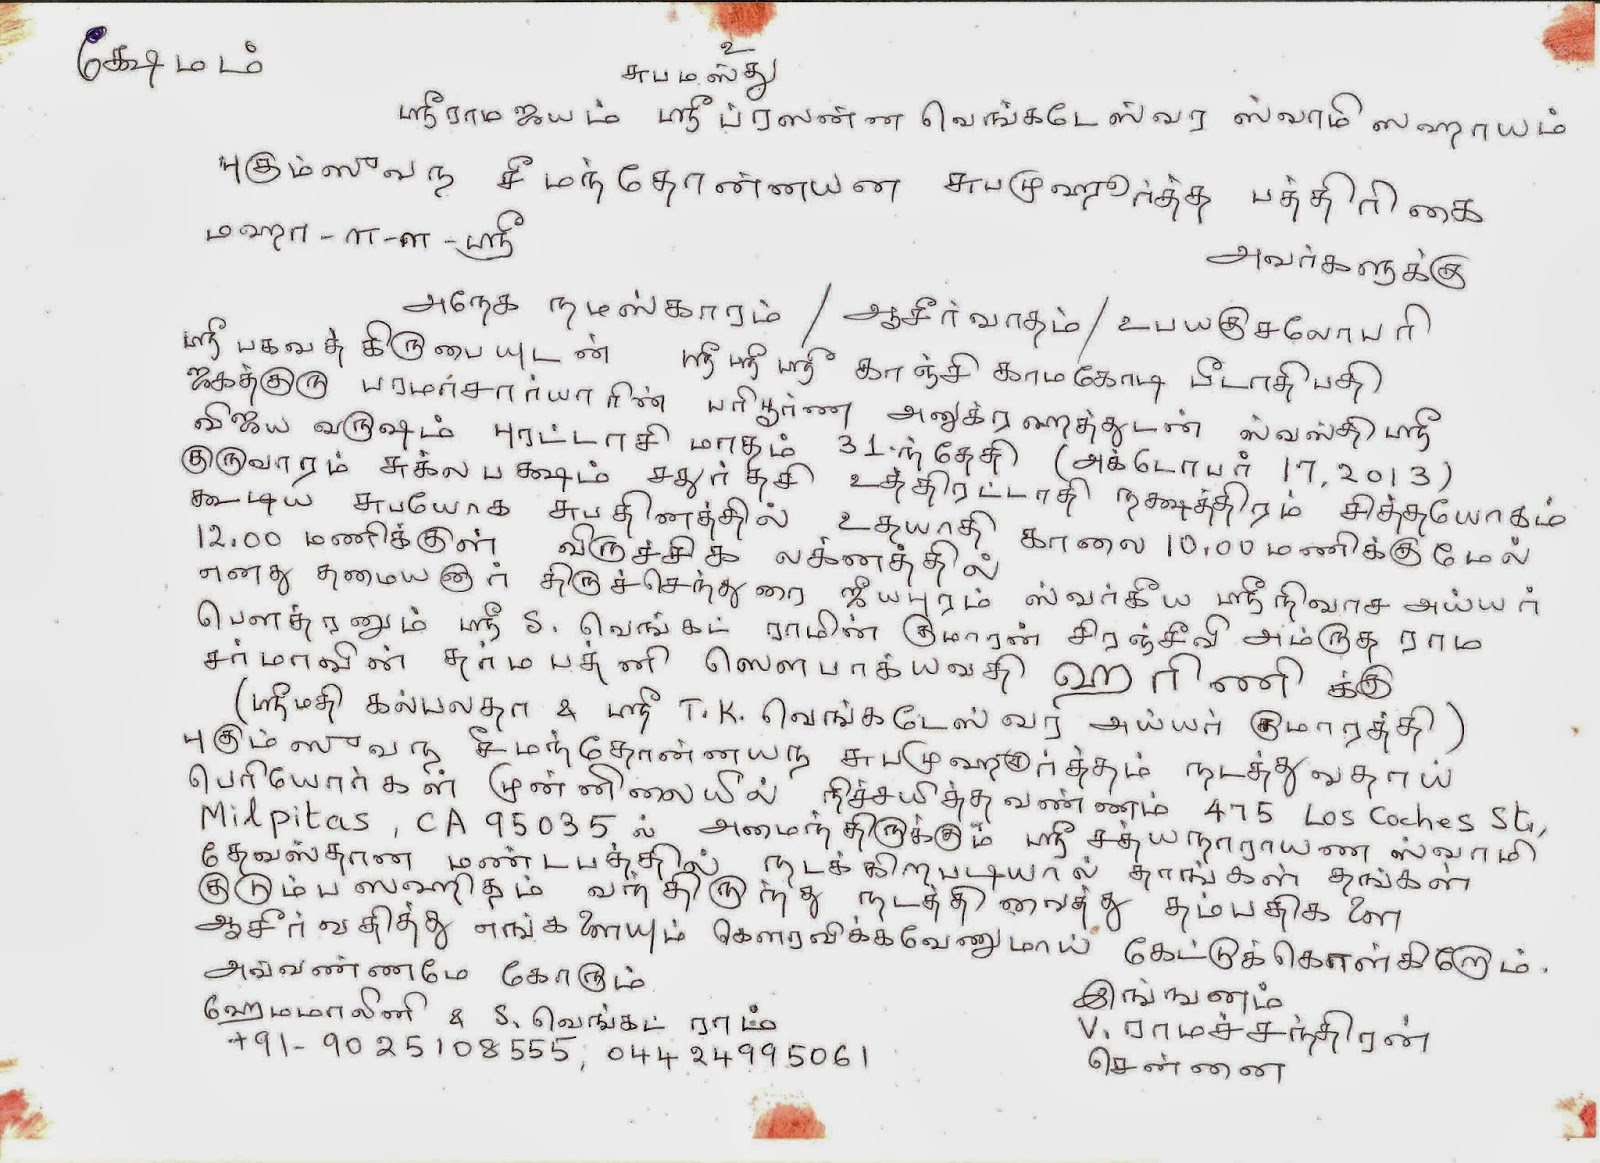 க்ஷேமம்
உ
சுபமஸ்து
ஸ்ரீராமஜயம் ஸ்ரீப்ரஸன்ன வெங்கடேஸ்வர ஸ்வாமி ஸஹாயம்
புகும்ஸுவந சீமந்தோன்னயன சுபமுஹூர்த்த பத்திரிகை
மஹா-ா-ள-ஸ்ரீ
அவர்களுக்கு
அநேக நமஸ்காரம் / ஆசீர்வாதம் / உபயகுசலோபரி
ஸ்ரீபகவத் கிருபையுடன் ஸ்ரீ ஸ்ரீ ஸ்ரீ காஞ்சி காமகோடி பீடாதிபதி
ஜகத்குரு பரமாச்சார்யாரின் பரிபூர்ண அனுக்ரஹத்துடன் ஸ்வஸ்திஸ்ரீ
விஜய வருஷம் புரட்டாசி மாதம் 31.ந்தேதி (அக்டோபர் 17, 2013)
குருவாரம் சுக்லபக்ஷம் சதுர்தசி உத்திரட்டாதி நக்ஷத்திரம் சித்தயோகம்
கூடிய சுபயோக சுபதினத்தில் உதயாதி காலை 10.00 மணிக்குமேல்
12.00 மணிக்குள் விருச்சிக லக்னத்தில்
எனது தமையனார் திருச்செந்துரை ஜீயபுரம் ஸ்வர்கீய ஸ்ரீநிவாச அய்யர்
பௌத்ரனும் ஸ்ரீ S. வெங்கட் ராமின் குமாரன் சிரஞ்சீவி அம்ருத ராம
சர்மாவின் தர்மபத்னி ஸௌபாக்யவதி ஹரிணி க்கு
(ஸ்ரீமதி கல்பலதா & ஸ்ரீ T.K. வெங்கடேஸ்வர அய்யர் குமாரத்தி)
புகும்ஸுவந சீமந்தோன்னயந சுபமுஹூர்த்தம் நடத்துவதாய்
பெரியோர்கள் முன்னிலையில் நிச்சயித்தவண்ணம் 475 Los Coches St.,
Milpitas, CA 95035 ல் அமைந்திருக்கும் ஸ்ரீ சத்யநாராயண ஸ்வாமி
தேவஸ்தான மண்டபத்தில் நடக்கிறபடியால் தாங்கள் தங்கள்
குடும்பஸஹிதம் வந்திருந்து நடத்திவைத்து தம்பதிகளை
ஆசீர்வதித்து எங்களையும் கௌரவிக்கவேணுமாய் கேட்டுக்கொள்கிறேம்.
அவ்வண்ணமே கோரும்
ஹேமமாலினி & S. வெங்கட் ராம்
+91-9025108555, 04424995061
இங்ஙனம்
V. ராமச்சந்திரன்
சென்னை